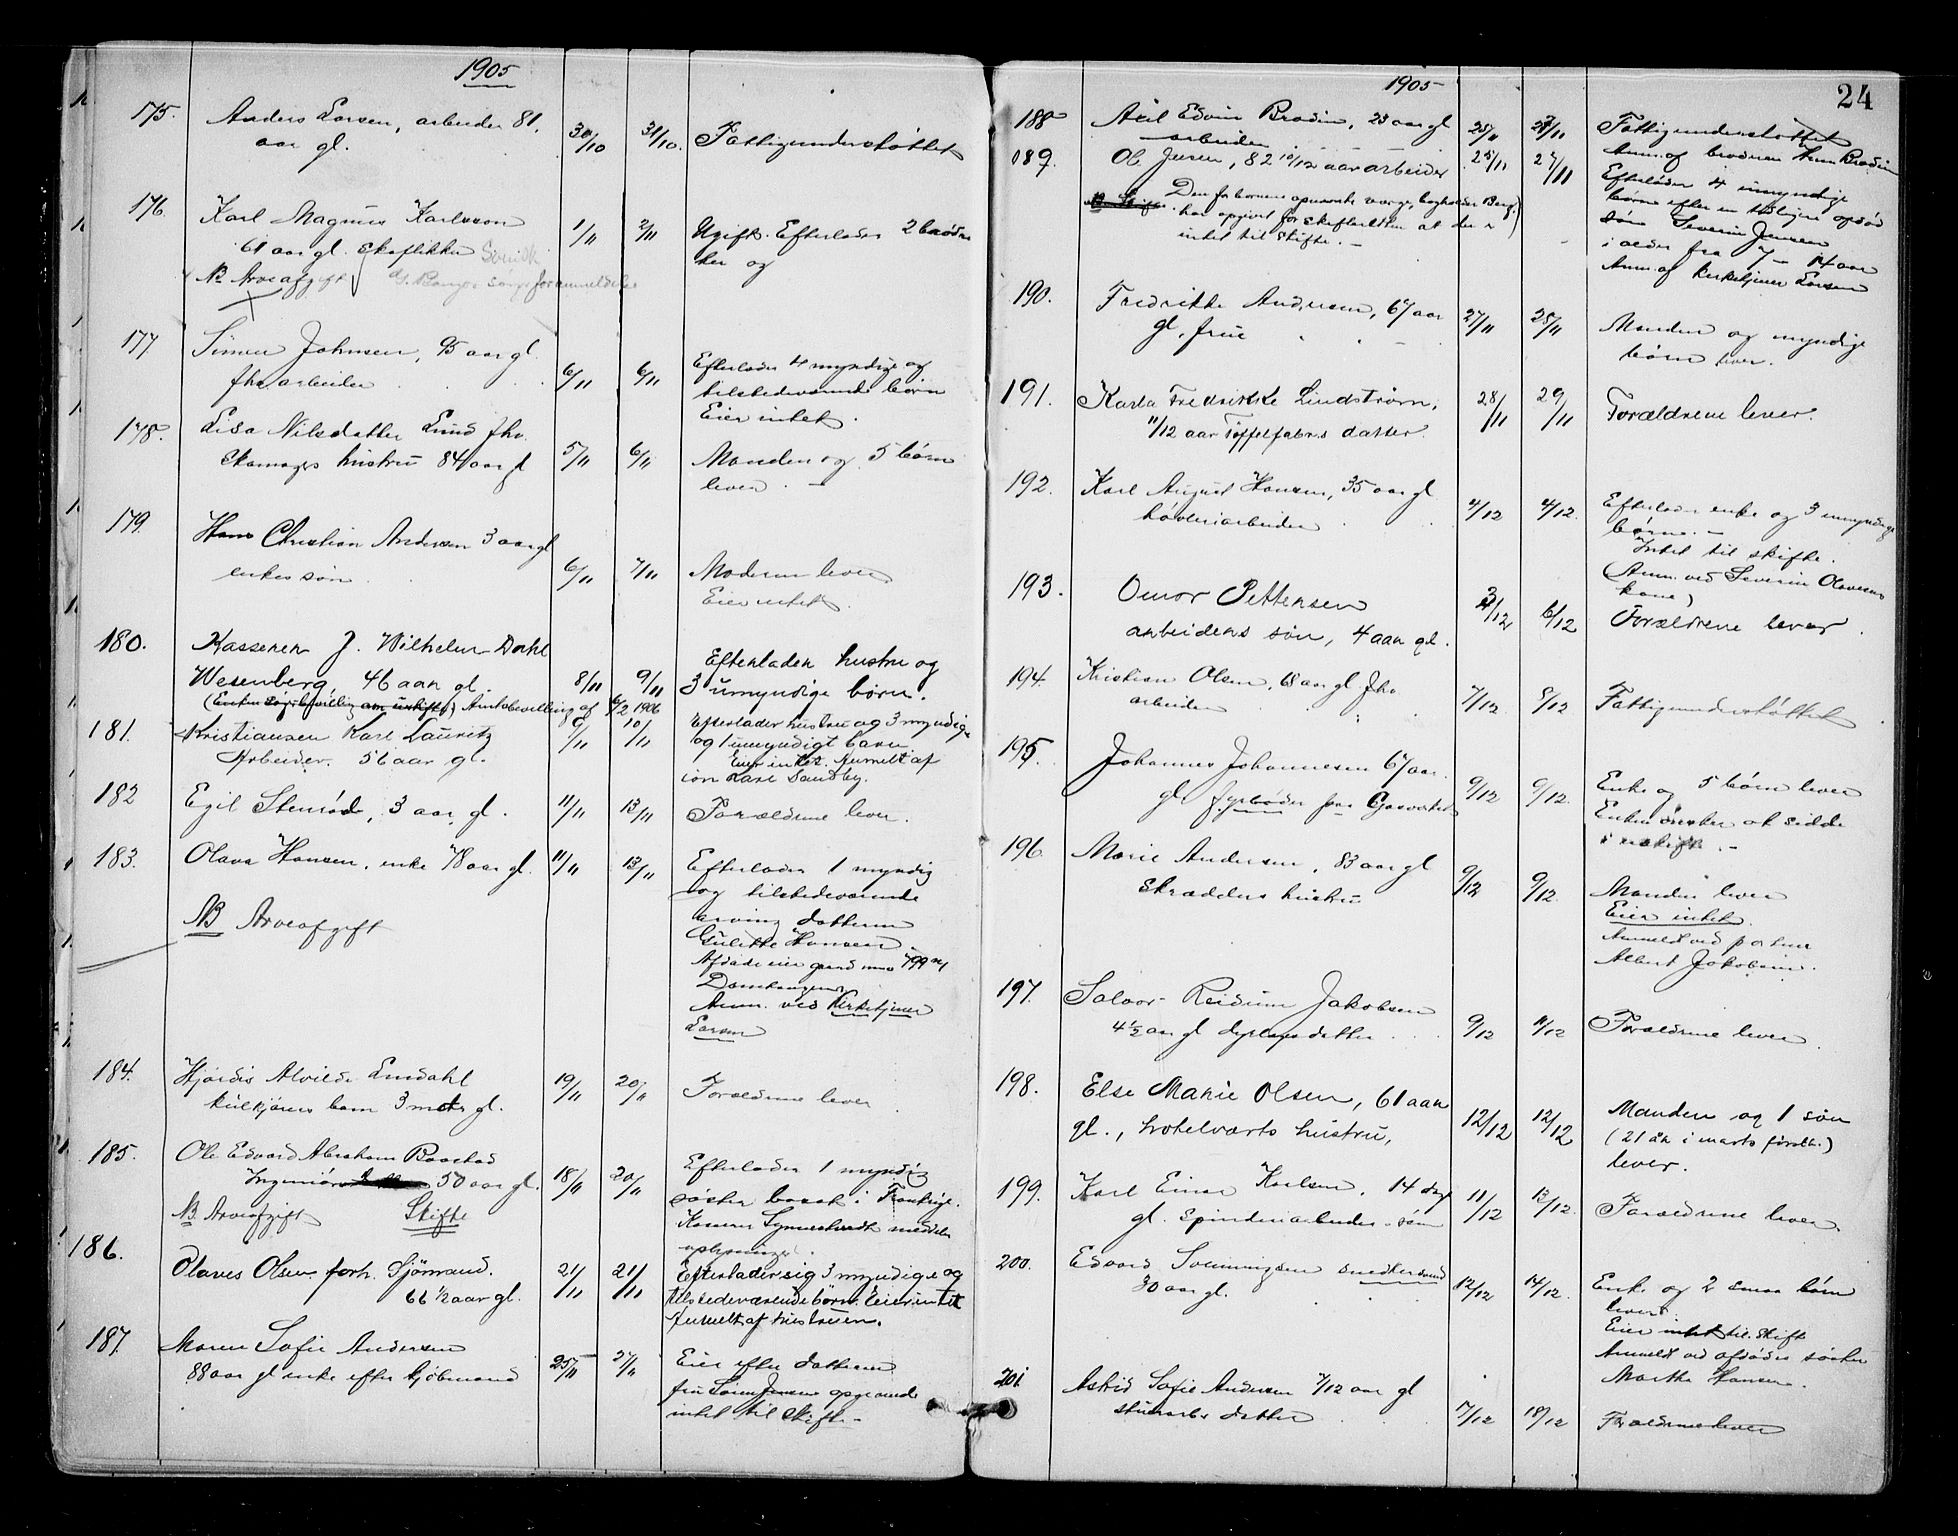 1905
175. Anders Larsen, arbeider 81,
aar gl. 30/10 31/10. Fattigunderstøttet
176. Karl Magnus Karlsson
61 aar gl. Skoflikker Svensk 1/11 2/11 Ugift. Efterlader 2 brødre
her og
NB Arveafgift
177 Simen Johnsen, 95 aar gl.
fhv arbeider 6/11 6/11 Efterlader 4 myndige og
tilstedeværende børn
Eier intet.
178. Lisa Nilsdatter Lund fhv.
Skomagers hustru 84 aar gl 5/11 6/11 Manden og 5 børn
lever. -
179. Hans Christian Andersen 3 aar gl
enkes søn 6/11 7/11 Moderen lever
Eier intet.
180. Kasserer J. Wilhelm Dahl
Wesenberg, 46 aar gl. 8/11 9/11 Efterlader hustru og
3 umyndige børn.
Amtsbevilling af 6/2 1906
181. Kristiansen Karl Lauritz
Arbeider. 56 aar gl. 9/11 10/11 Efterlader hustru og 3 myndige
og 1 umyndigt barn
Eier intet. Anmeldt af
søn Karl Sandby.
182 Egil Stenrød, 3 aar gl. 11/11 13/11 Forældrene lever.
183. Olava Hansen, enke 78 aar gl. 11/11 13/11 Efterlader 1 myndig
og tilstedeværende
arving datteren
Gulette Hansen
Afdøde eier gaard no 799
Damhaugen
Anm. ved Kirketjener
Larsen
NB Arveafgift
184. Hjørdis Alvilde Lindahl
kulkjørers barn 3 mdr gl. 19/11 20/11 Forældrene lever
185. Ole Edvard Abraham Baastad
Ingeniør 50 aar gl. 18/11 20/11 Efterlader 1 myndig
søster bosat i Frankrige.
meddeler
oplysninger.
NB Arveafgift Skifte
186. Olaves Olsen forh. Sjømand.
66 1/2 aar gl. 21/11 21/11 Efterlader sig 3 myndige og
tilstedeværende børn. Eier intet
Anmeldt af hustruen.
187. Maren Sofie Andersen
88 aar gl enke efter kjøbmand 25/11 27/11 Eier efter datteren
fru Jensens opgivende
intet til Skifte -
1905 24
188 Axil Edvin Brodin, 23 aar gl
arbeider 25/11 27/11 Fattigunderstøttet
Anm. af broderen Brodin
189. Ole Jensen, 82 10/12 aar arbeider 25/11 27/11 Efterlader 4 umyndige
børn efter en tidligere afdød
søn Severin Jensen
i alder fra 7 - 14 aar
Anm. af kirketjener Larsen
Den for børnene opnævnte værge, bogholder Berg,
har opgivet for skifteretten at der er
intet til skifte. -
190. Fredrikke Andersen, 67 aar
gl, frue 27/11 28/11 Manden og myndige
børn lever.
191. Karla Fredrikke Lindstrøm,
11/12 aar Tøffelfabr.s datter. 28/11 29/11 Forældrene lever.
192. Karl August Hansen, 35 aar gl
høvleriarbeider 4/12 4/12. Efterlader enke og 3 umyndige
børn. -
Intet til skifte.
(Anm. ved Severin Olavesens
kone)
193. Omar Pettersen
arbeiders søn, 4 aar gl. 3/12 6/12 Forældrene lever.
194. Kristian Olsen, 68 aar gl. fhv
arbeider 7/12 8/12 Fattigunderstøttet
195. Johannes Johannesen 67 aar.
gl. fyrbøder paa Gasverket 9/12 9/12. Enke og 5 børn lever
Enken ønsker at sidde
i uskifte. -
196. Marie Andersen, 83 aar gl
Skrædders hustru 9/12 9/12. Manden lever
Eier intet.
Anmeldt ved portner
Albert Jakobsen.
197. Salvor Reidun Jakobsen
4 1/2 aar gl datter 9/12 11/12 Forældrene lever
198. Else Marie Olsen, 61 aar
gl., hotelværts hustru, 12/12 12/12 Manden og 1 søn
(21 år i marts førstk.)
lever.
199. Karl Einar Karlsen, 14 dage
gl. spinderiarbeiders søn 11/12 13/12. Forældrene lever.
200. Edvard Svenningsen snedkersvend
30 aar gl. 12/12 14/12. Enke og 2 smaa børn
lever.
Eier intet til skifte
Anmeldt ved afdødes søster
Marthe Hansen.
201 Astrid Sofie Andersen 7/12 aar gl
datter 17/12 18/12 Forældrene lever